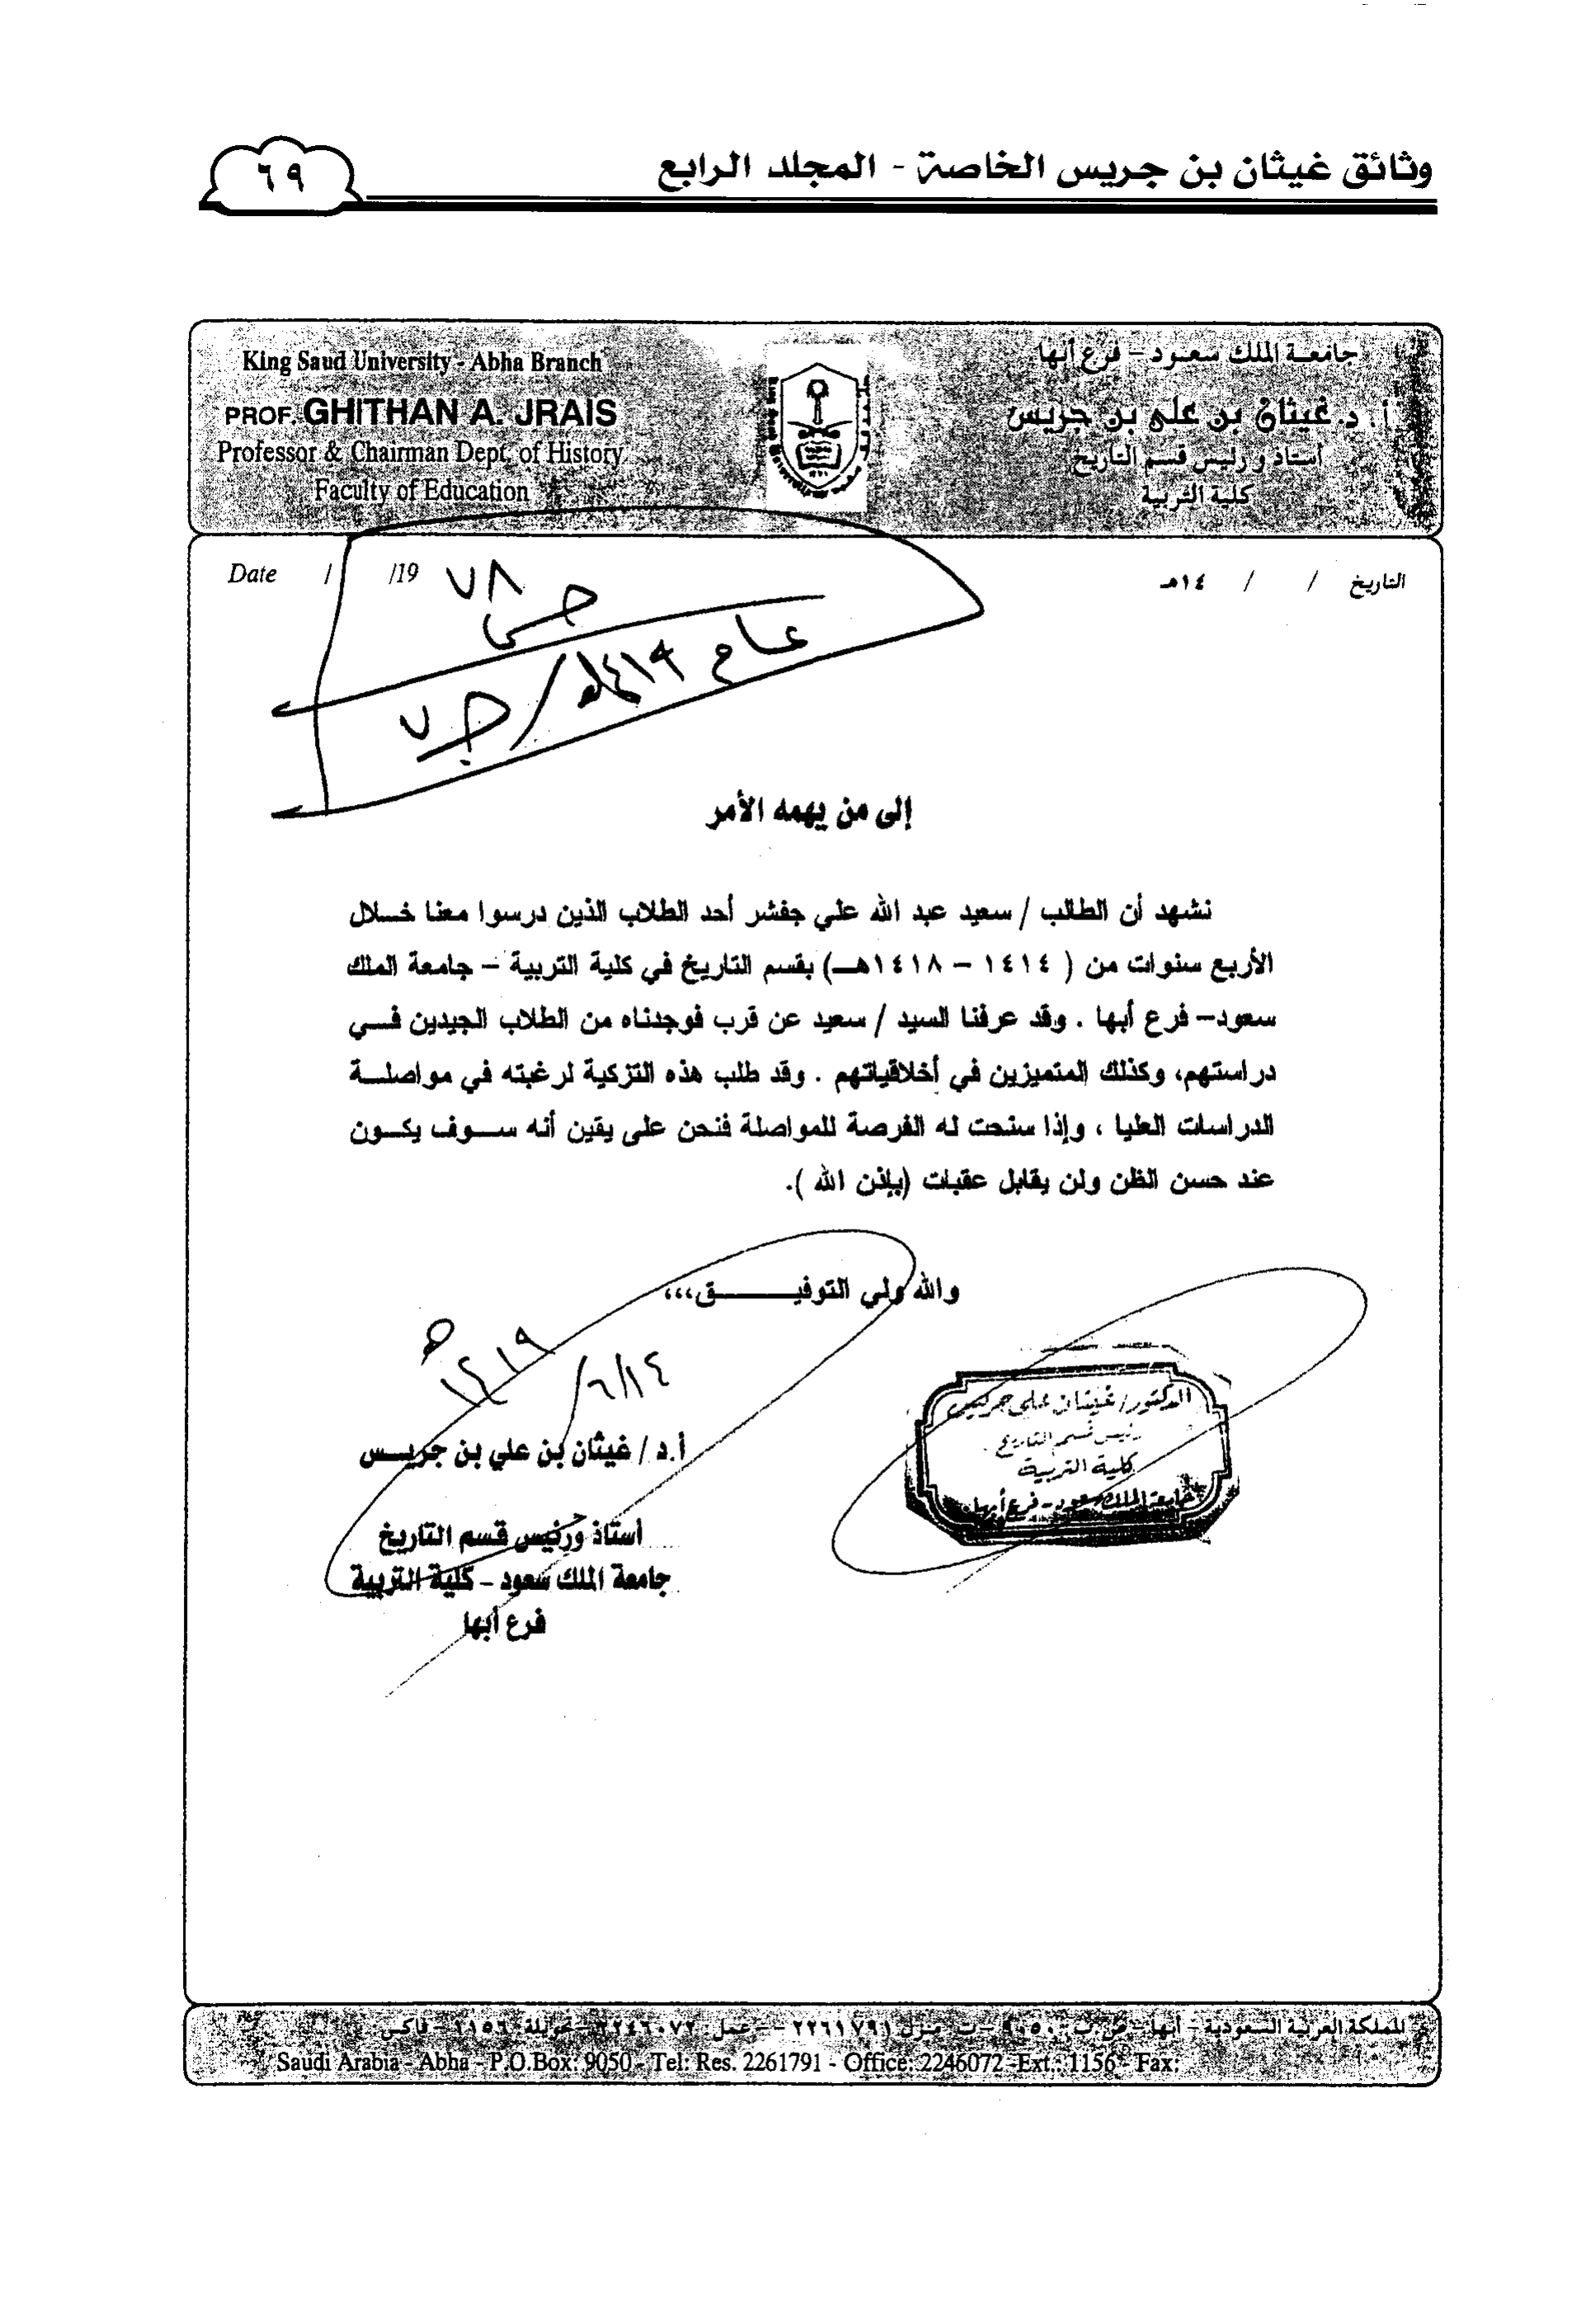 وثائق غيثان بن جريس الخاصة - المجلد الرابع
٦٩
King Saud University - Abha Branch
PROF. GHITHAN A. JRAIS
Professor & Chairman Dept. of History
Faculty of Education
جامعة الملك سعود - فرع أبها
أ.د. غيثان بن على بن جريس
أستاذ ورئيس قسم التاريخ
كلية التربية
Date / /19
التاريخ / / ١٤هـ
٧٨
عام ١٤١٩هـ / جـ٧
إلى من يهمه الأمر
نشهد أن الطالب / سعيد عبد الله علي جفشر أحد الطلاب الذين درسوا معنا خـــلال
الأربع سنوات من ( ١٤١٤ – ١٤١٨هــ) بقسم التاريخ في كلية التربية – جامعة الملك
سعود– فرع أبها . وقد عرفنا السيد / سعيد عن قرب فوجدناه من الطلاب الجيدين فـــي
دراستهم، وكذلك المتميزين في أخلاقياتهم . وقد طلب هذه التزكية لرغبته في مواصلـــة
الدراسات العليا ، وإذا سنحت له الفرصة للمواصلة فنحن على يقين أنه ســـوف يكـــون
عند حسن الظن ولن يقابل عقبات (بإذن الله ).
والله ولي التوفيـــــــــق،،،
١٤/٦/١٤١٩هـ
أ.د / غيثان بن علي بن جريـــس
أستاذ ورئيس قسم التاريخ
جامعة الملك سعود - كلية التربية
فرع أبها
الدكتور/ غيثان على جريس
رئيس قسم التاريخ
كلية التربية
جامعة الملك سعود - فرع أبها
المملكة العربية السعودية - أبها - ص.ب: ٩٠٥٠ - ت منزل ٢٢٦١٧٩١ - عمل: ٢٢٤٦٠٧٢ - تحويلة: ١١٥٦ - فاكس
Saudi Arabia - Abha - P.O.Box: 9050 - Tel: Res. 2261791 - Office: 2246072 -Ext.: 1156 - Fax: